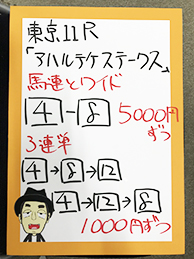 東京11R
「アハルテケステークス」
馬連とワイド
4-8 5000円
ずつ
3連単
4→8→12
4→12→8
1000円ずつ